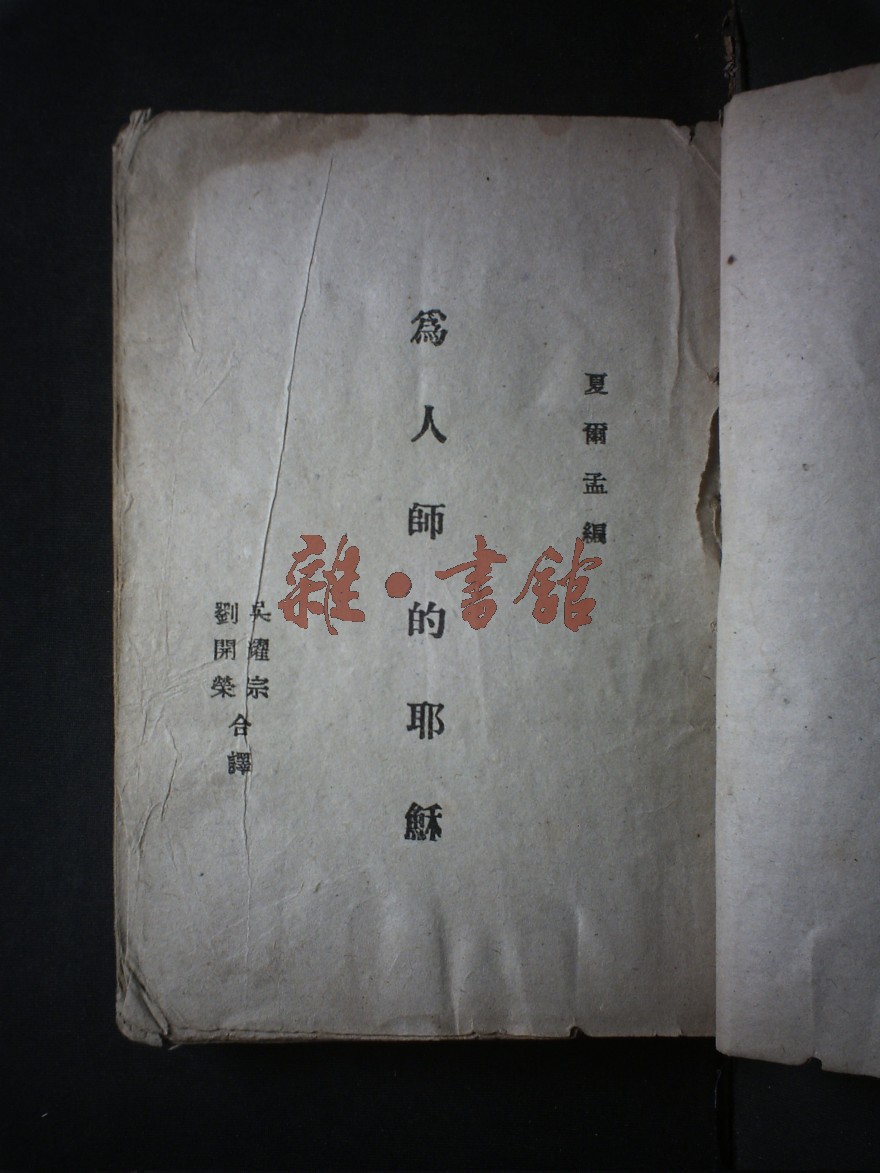 夏爾孟編
爲人師的耶穌
吳耀宗
劉開榮
合譯
雜·書館